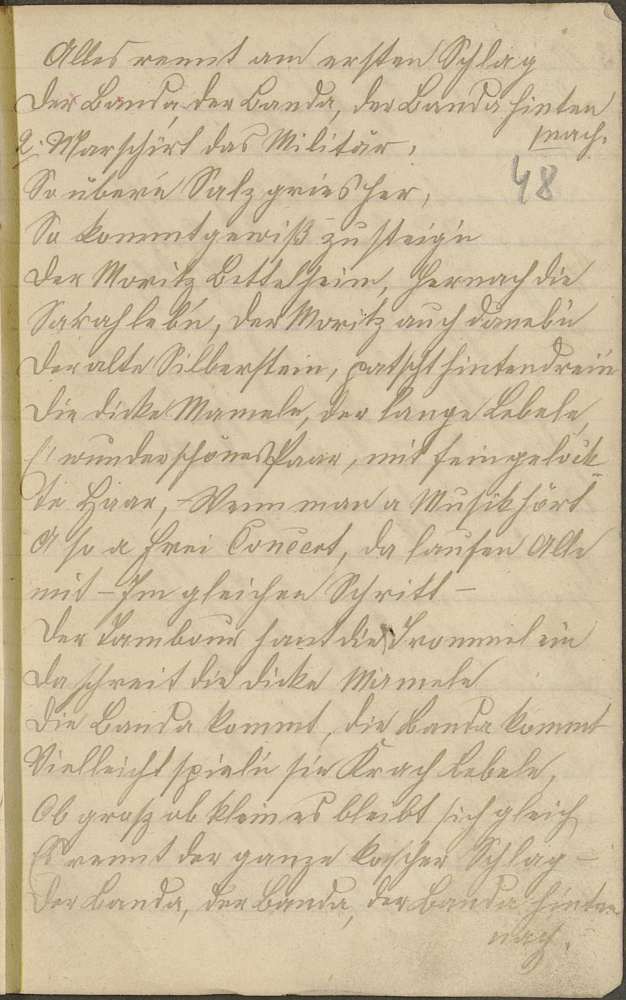 Alles rennt am ersten Schlag
Der Banda, der Banda, der Banda hinten
nach.
2. Marschirt das Militär,
48
So übern Salzgries her,
Da kommt gewiß zu steig'n
Der Moritz Bettelheim, hernach die
Sarahleb'n, der Moritz auch daneb'n
Der alte Silberstein, patscht hintendrein
Die dicke Mamele, der lange Lebele,
A wunderschönes Paar, mit feingelöck-
te Haar, - Wenn man a Musik hört
A so a frei Concert, da laufen Alle
mit - Im gleichen Schritt -
Der Tambour haut die Trommel ein
Da schreit die dicke Mamele
Die Banda kommt, die Banda kommt
Vielleicht spiel'n sie Krach Lebele,
Ob groß ob klein es bleibt sich gleich
Es rennt der ganze koscher Schlag -
Der Banda, der Banda, der Banda hinten
nach.